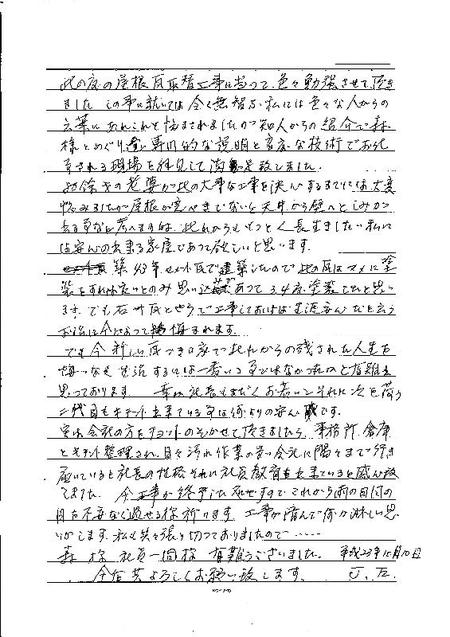 此の度の屋根瓦取替工事に当って、色々勉強させて頂き
ました この事に就いては全く無智な私には色々な人からの
言葉にあれこれと悩まされましたが知人からの紹介で森
様とめぐり逢い専門的な説明と高度な技術で
される現場を拝見して満足致しました。
老婆が此の大事な工事を決心するまでには大変
悩みましたが屋根が完ぺきでないと天井から壁へとしみが
出る事など考へますれば、此れからもっと人長生きしたい私に
は安心の出来る家屋であって欲しいと思います。
築43年セメント瓦で建築したので此の瓦はマメに塗
装をすれば良いとのみ思い込あって3、4度塗装したと思い
ます。でも石州瓦とやらで工事しておけば生涯安心だと云う
お話に今になって悔まれます。
でも今新しい瓦ぶき家で此れからの残された人生を
悔いなく生活するには一番いい事ではなかったのと有難く
思っております。幸い社長もまだお若いしそれに次を荷う
二代目もキチンと出来ている事は何よりの安心感です。
実は会社の方をチョットのぞかせて頂きましたら、事務所、倉庫
とキチンと整理され、日々汚れ作業の多い会社に隅々まで行き
届いていると社長の性格それに社員教育も出来ていると感心致
しました。今工事が終了した直せすのでこれから雨の日風の
日も不安なく過せる様祈ります。工事が済んで何か淋しい思
いがします。私も共々張り切っておりましたので・・・・・
森様、社員一同様 有難うございました。平成23年10月10日
今后共よろしくお願い致します。